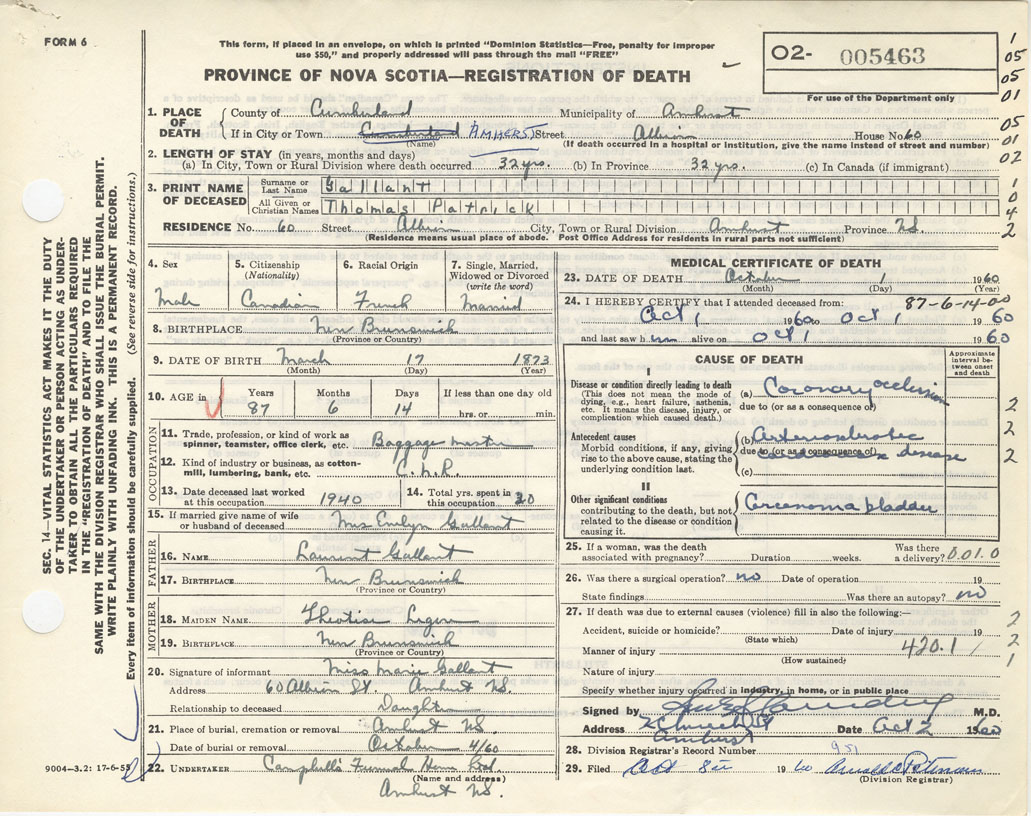 FORM 6
This form, if placed in an envelope, on which is printed "Dominion Statistics—Free, penalty for improper
use $50," and properly addressed will pass through the mail "FREE"
PROVINCE OF NOVA SCOTIA—REGISTRATION OF DEATH
O2- 005463
For use of the Department only
1
05
05
01
05
01
02
1
0
4
2
SEC. 14—VITAL STATISTICS ACT MAKES IT THE DUTY
OF THE UNDERTAKER OR PERSON ACTING AS UNDER-
TAKER TO OBTAIN ALL THE PARTICULARS REQUIRED
IN THE "REGISTRATION OF DEATH" AND TO FILE THE
SAME WITH THE DIVISION REGISTRAR WHO SHALL ISSUE THE BURIAL PERMIT.
WRITE PLAINLY WITH UNFADING INK. THIS IS A PERMANENT RECORD.
Every item of information should be carefully supplied. (See reverse side for instructions.)
1. PLACE OF DEATH
County of Cumberland Municipality of Amherst
If in City or Town Cumberland AMHERST Street Albion House No. 60
(Name) (If death occurred in a hospital or Institution, give the name instead of street and number)
2. LENGTH OF STAY (in years, months and days)
(a) In City, Town or Rural Division where death occurred 32 yrs. (b) In Province 32 yrs. (c) In Canada (if immigrant)
3. PRINT NAME OF DECEASED
Surname or Last Name Gallant
All Given or Christian Names Thomas Patrick
RESIDENCE No. 60 Street Albion City, Town or Rural Division Amherst Province N.S.
(Residence means usual place of abode. Post Office Address for residents in rural parts not sufficient)
4. Sex
Male
5. Citizenship
(Nationality)
Canadian
6. Racial Origin
French
7. Single, Married,
Widowed or Divorced
(write the word)
Married
8. BIRTHPLACE New Brunswick
(Province or Country)
9. DATE OF BIRTH March 17 1873
(Month) (Day) (Year)
10. AGE in Years Months Days If less than one day old
87 6 14 hrs. or min.
OCCUPATION
11. Trade, profession, or kind of work as
spinner, teamster, office clerk, etc. Baggage master
12. Kind of industry or business, as cotton-
mill, lumbering, bank, etc. C.N.R.
13. Date deceased last worked
at this occupation 1940
14. Total yrs. spent in
this occupation 30
15. If married give name of wife
or husband of deceased Mrs Evelyn Gallant
FATHER
16. NAME Laurent Gallant
17. BIRTHPLACE New Brunswick
(Province or Country)
MOTHER
18. MAIDEN NAME
19. BIRTHPLACE New Brunswick
(Province or Country)
20. Signature of informant Miss Marie Gallant
Address 60 Albion St. Amherst N.S.
Relationship to deceased Daughter
21. Place of burial, cremation or removal Amherst N.S.
Date of burial or removal October 4/60
22. UNDERTAKER Campbell's Funeral Home Ltd.
(Name and address)
Amherst N.S.
9004-3.2: 17-6-55
MEDICAL CERTIFICATE OF DEATH
23. DATE OF DEATH October 1 1960
(Month) (Day) (Year)
24. I HEREBY CERTIFY that I attended deceased from: 87-6-14-00
Oct 1 1960 to Oct 1 1960
and last saw him alive on Oct 1 1960
CAUSE OF DEATH
Approximate interval between onset and death
I
Disease or condition directly leading to death
(This does not mean the mode of
dying, e.g., heart failure, asthenia,
etc. It means the disease, injury, or
complication which caused death.)
(a) Coronary occlusion
due to (or as a consequence of)
Antecedent causes
Morbid conditions, if any, giving
rise to the above cause, stating the
underlying condition last.
(b) Arteriosclerotic
due to (or as a consequence of)
disease
(c)
II
Other significant conditions
contributing to the death, but not
related to the disease or condition
causing it.
Carcenoma bladder
2
2
2
25. If a woman, was the death
associated with pregnancy? Duration weeks. Was there
a delivery? 0.01.0
26. Was there a surgical operation? no Date of operation 19
State findings Was there an autopsy? no
27. If death was due to external causes (violence) fill in also the following:—
Accident, suicide or homicide? Date of injury 19
(State which)
Manner of injury 420.1
(How sustained)
Nature of injury
Specify whether injury occurred in industry, in home, or in public place
2
2
1
Signed by M.D.
Address 2 Church St Date Oct 2 1960
Amherst
28. Division Registrar's Record Number
29. Filed Oct 8th 1960
(Division Registrar)